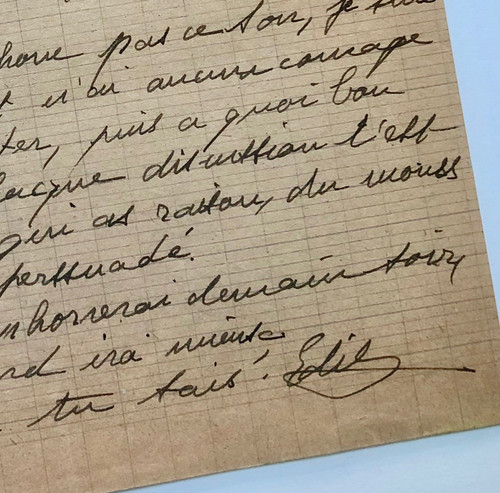 pas ce soir, je suis
n'ai aucun courage
ter, puis a quoi bon
chaque discussion c'est
qui as raison, du moins
persuadé.
demain soir,
ira mieux
tu sais! Edith